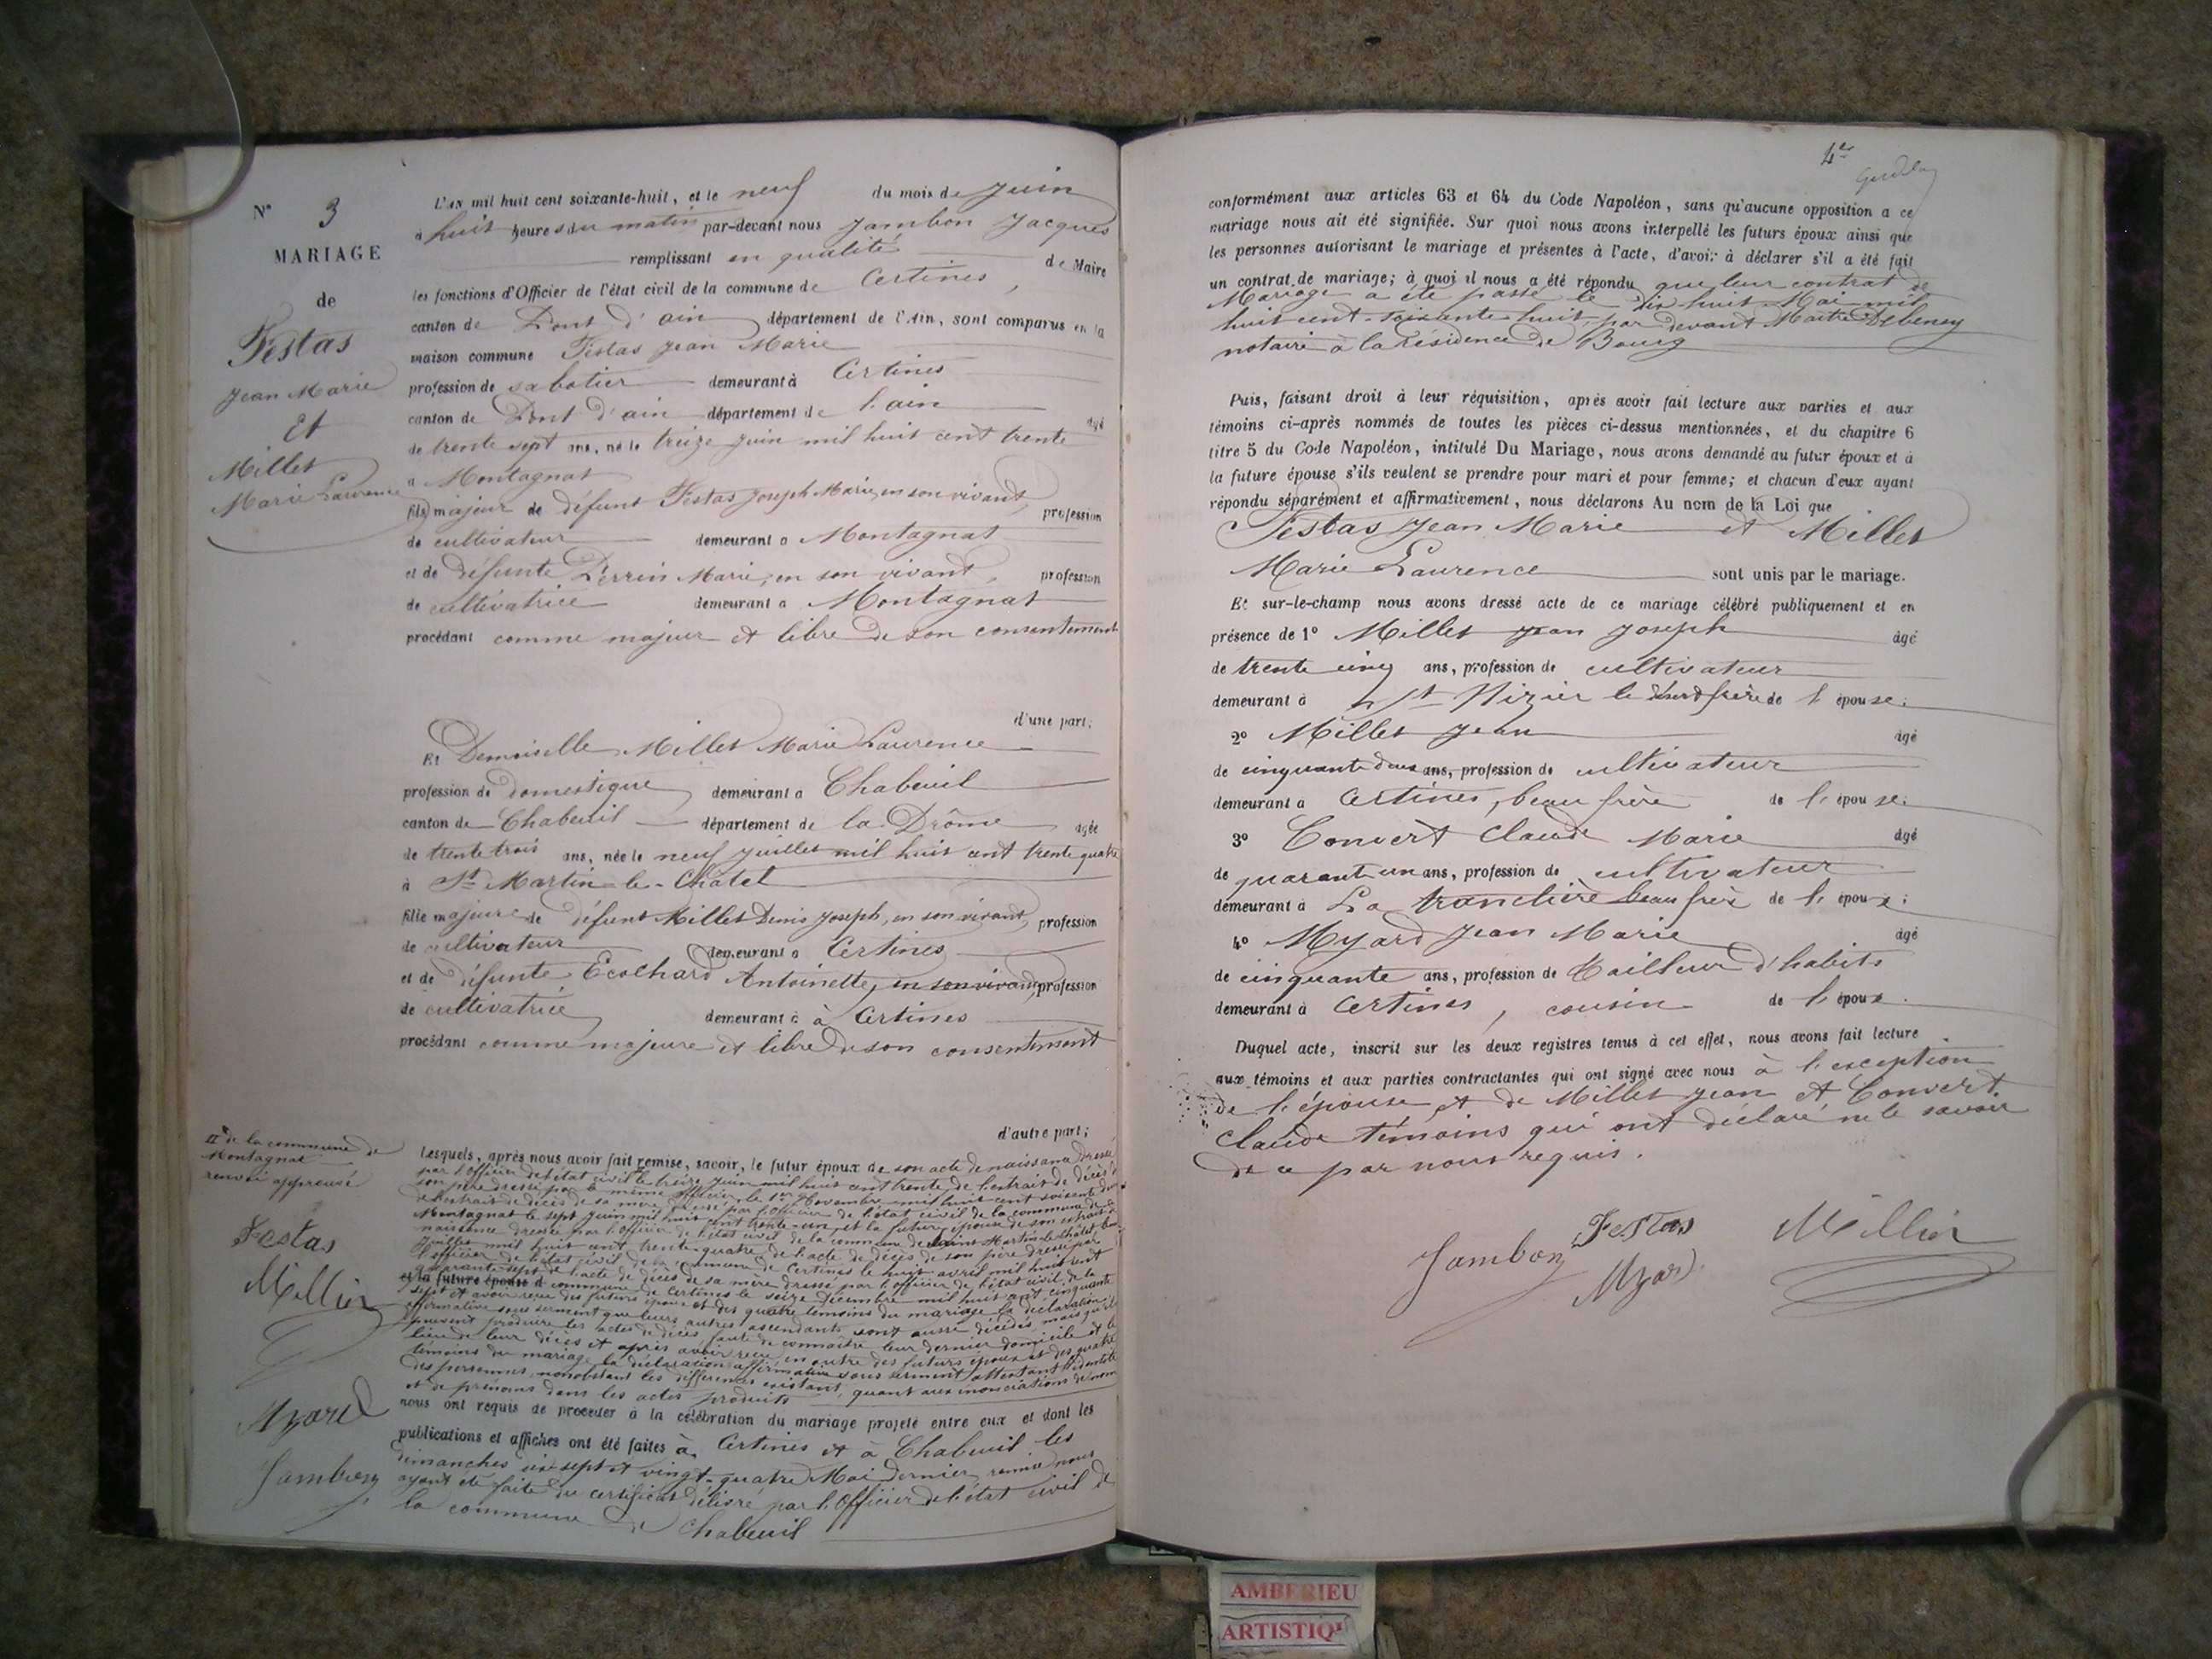 N° 3
MARIAGE
de
Festas
Jean Marie
Et
Millet
Marie Laurence
L'an mil huit cent soixante-huit, et le neuf du mois de Juin
à huit heures du matin par-devant nous Jambon Jacques
remplissant en qualité de Maire
les fonctions d'Officier de l'état civil de la commune de Certines,
canton de Pont d'ain département de l'Ain, sont comparus en la
maison commune Festas Jean Marie
profession de sabotier demeurant à Certines
canton de Pont d'ain département de l'ain âgé
de trente sept ans, né le treize juin mil huit cent trente
à Montagnat
fils majeur de défunt Festas Joseph Marie, en son vivant, profession
de cultivateur demeurant à Montagnat
et de défunte Perrin Marie, en son vivant, profession
de cultivatrice demeurant à Montagnat
procédant comme majeur et libre de son consentement
d'une part;
Et Demoiselle Millet Marie Laurence
profession de domestique demeurant à Chabeuil
canton de Chabeuil département de la Drôme agée
de trente trois ans, née le neuf juillet mil huit cent trente quatre
à St Martin-le-Chatel
fille majeure de défunt Millet Denis Joseph, en son vivant, profession
de cultivateur demeurant à Certines
et de défunte Ecochard Antoinette, en son vivant, profession
de cultivatrice demeurant à à Certines
procédant comme majeure et libre de son consentement
d'autre part;
de la commune de
Montagnat
renvoi approuvé
Festas
Millier
Myard
Jambon
Lesquels, après nous avoir fait remise, savoir, le futur époux de son acte de naissance dressé
par l'officier de l'état civil le treize juin mil huit cent trente, de l'extrait de décès de
son père dressé par le même officier le 1er Novembre mil huit cent soixante
et l'extrait de décès de sa mère dressé par l'officier de l'état civil de la commune de
Montagnat le sept juin mil huit cent trente-un, et la future épouse de son extrait de
naissance dressé par l'officier de l'état civil de la commune de Saint Martin-le-Châtel
juillet mil huit cent trente-quatre, de l'acte de décès de son père dressé par
l'officier de l'état civil de la commune de Certines le huit avril mil huit cent
quarante-sept, de l'acte de décès de sa mère dressé par l'officier de l'état civil de la
et la future épouse d commune de Certines le seize décembre mil huit cent cinquante
sept et avoir reçu des futurs époux et des quatre témoins du mariage la déclaration
affirmative sous serment que leurs autres ascendants sont aussi décédés, mais qu'ils
ne peuvent produire les actes de décès, faute de connaître leur dernier domicile et le
lieu de leur décès et après avoir reçu en outre des futurs époux et des quatre
témoins du mariage la déclaration affirmative sous serment attestant l'identité
des personnes, nonobstant les différences existant, quant aux énonciations de noms
et de prénoms dans les actes produits
nous ont requis de procéder à la célébration du mariage projeté entre eux et dont les
publications et affiches ont été faites à Certines et à Chabeuil les
dimanches dix-sept et vingt-quatre Mai dernier, remise nous
ayant été faite du certificat délivré par l'Officier de l'état civil de
la commune de Chabeuil
conformément aux articles 63 et 64 du Code Napoléon, sans qu'aucune opposition a ce
mariage nous ait été signifiée. Sur quoi nous avons interpellé les futurs époux ainsi que
les personnes autorisant le mariage et présentes à l'acte, d'avoir à déclarer s'il a été fait
un contrat de mariage; à quoi il nous a été répondu que leur contrat de
Mariage a été passé le dix-huit Mai mil
huit cent-soixante-huit, par devant Maître Debeney
notaire à la résidence de Bourg
Puis, faisant droit à leur réquisition, après avoir fait lecture aux parties et aux
témoins ci-après nommés de toutes les pièces ci-dessus mentionnées, et du chapitre 6
titre 5 du Code Napoléon, intitulé Du Mariage, nous avons demandé au futur époux et à
la future épouse s'ils veulent se prendre pour mari et pour femme; et chacun d'eux ayant
répondu séparément et affirmativement, nous déclarons Au nom de la Loi que
Festas Jean Marie et Millet
Marie Laurence sont unis par le mariage.
Et sur-le-champ nous avons dressé acte de ce mariage célébré publiquement et en
présence de 1° Millet Jean Joseph âgé
de trente cinq ans, profession de cultivateur
demeurant à St Nizier le désert frère de l'épouse;
2° Millet Jean âgé
de cinquante deux ans, profession de cultivateur
demeurant à Certines, beau frère de l'épouse;
3° Convert Claude Marie âgé
de quarant un ans, profession de cultivateur
demeurant à La tranclière beau frère de l'époux;
4° Myard Jean Marie âgé
de cinquante ans, profession de tailleur d'habits
demeurant à Certines, cousin de l'époux.
Duquel acte, inscrit sur les deux registres tenus à cet effet, nous avons fait lecture
aux témoins et aux parties contractantes qui ont signé avec nous à l'exception
de l'épouse et de Millet Jean et Convert
Claude témoins qui ont déclaré ne le savoir
de ce par nous requis.
Jambon Festas Millier
Myard
AMBERIEU
ARTISTIQ